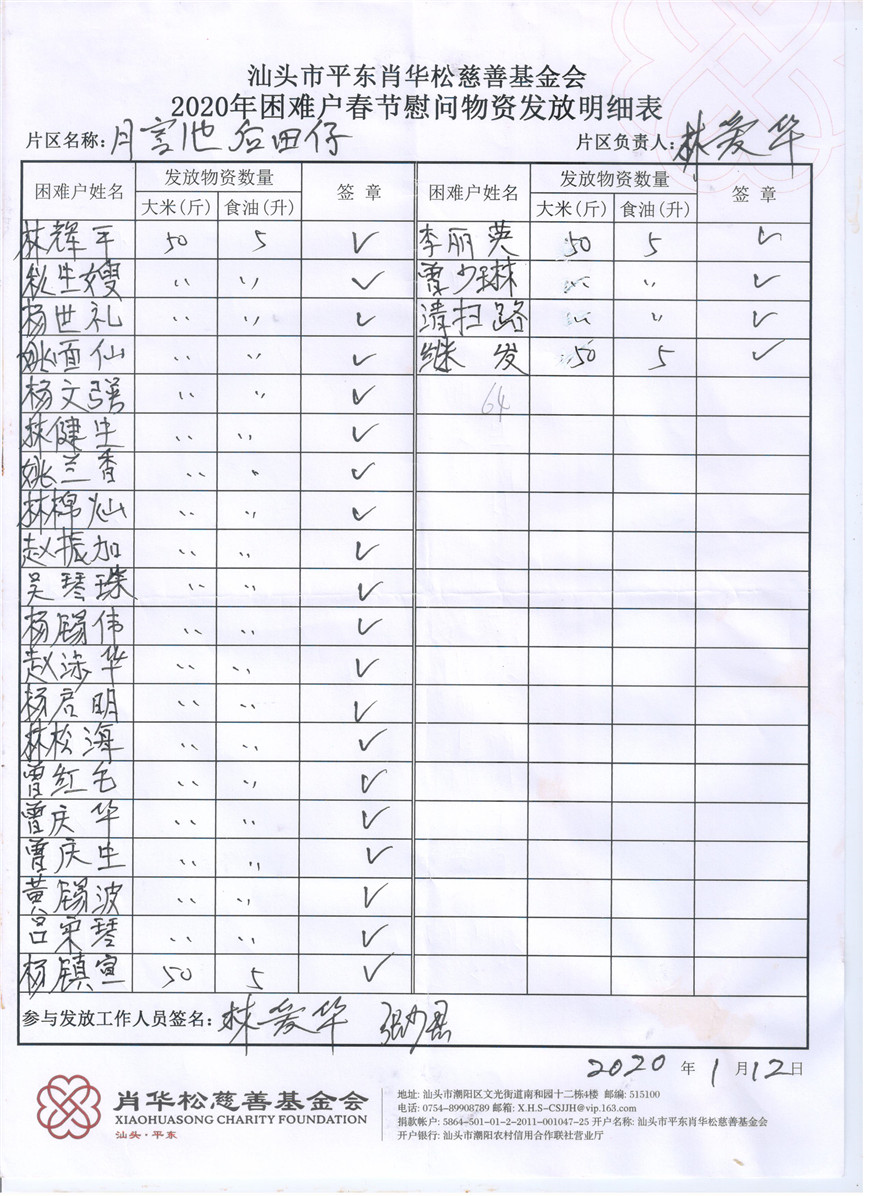 汕头市平东肖华松慈善基金会
2020年困难户春节慰问物资发放明细表
片区名称: 月宫池 后田仔 片区负责人: 林爱华
困难户姓名 发放物资数量 签 章 困难户姓名 发放物资数量 签 章
大米(斤) 食油(升) 大米(斤) 食油(升)
林辉平 50 5 ✓ 李丽英 50 5 ✓
生嫂 〃 〃 ✓ 曾少琳 〃 〃 ✓
杨世礼 〃 〃 ✓ 清扫路 〃 〃 ✓
姚 仙 〃 〃 ✓ 继发 50 5 ✓
杨文强 〃 〃 ✓ 64
林健生 〃 〃 ✓
姚兰香 〃 〃 ✓
林棉灿 〃 〃 ✓
赵振加 〃 〃 ✓
吴琴珠 〃 〃 ✓
杨锡伟 〃 〃 ✓
赵 华 〃 〃 ✓
杨启明 〃 〃 ✓
林松海 〃 〃 ✓
曾红毛 〃 〃 ✓
曾庆华 〃 〃 ✓
曾庆生 〃 〃 ✓
黄锡波 〃 〃 ✓
吕 琴 〃 〃 ✓
杨镇宣 50 5 ✓
参与发放工作人员签名: 林爱华
2020 年 1 月 12 日
肖华松慈善基金会
XIAOHUASONG CHARITY FOUNDATION
汕头·平东
地址: 汕头市潮阳区文光街道南和园十二栋4楼 邮编: 515100
电话: 0754-89908789 邮箱: X.H.S-CSJJH@vip.163.com
捐款帐户: 5864-501-01-2-2011-001047-25 开户名称: 汕头市平东肖华松慈善基金会
开户银行: 汕头市潮阳农村信用合作联社营业厅